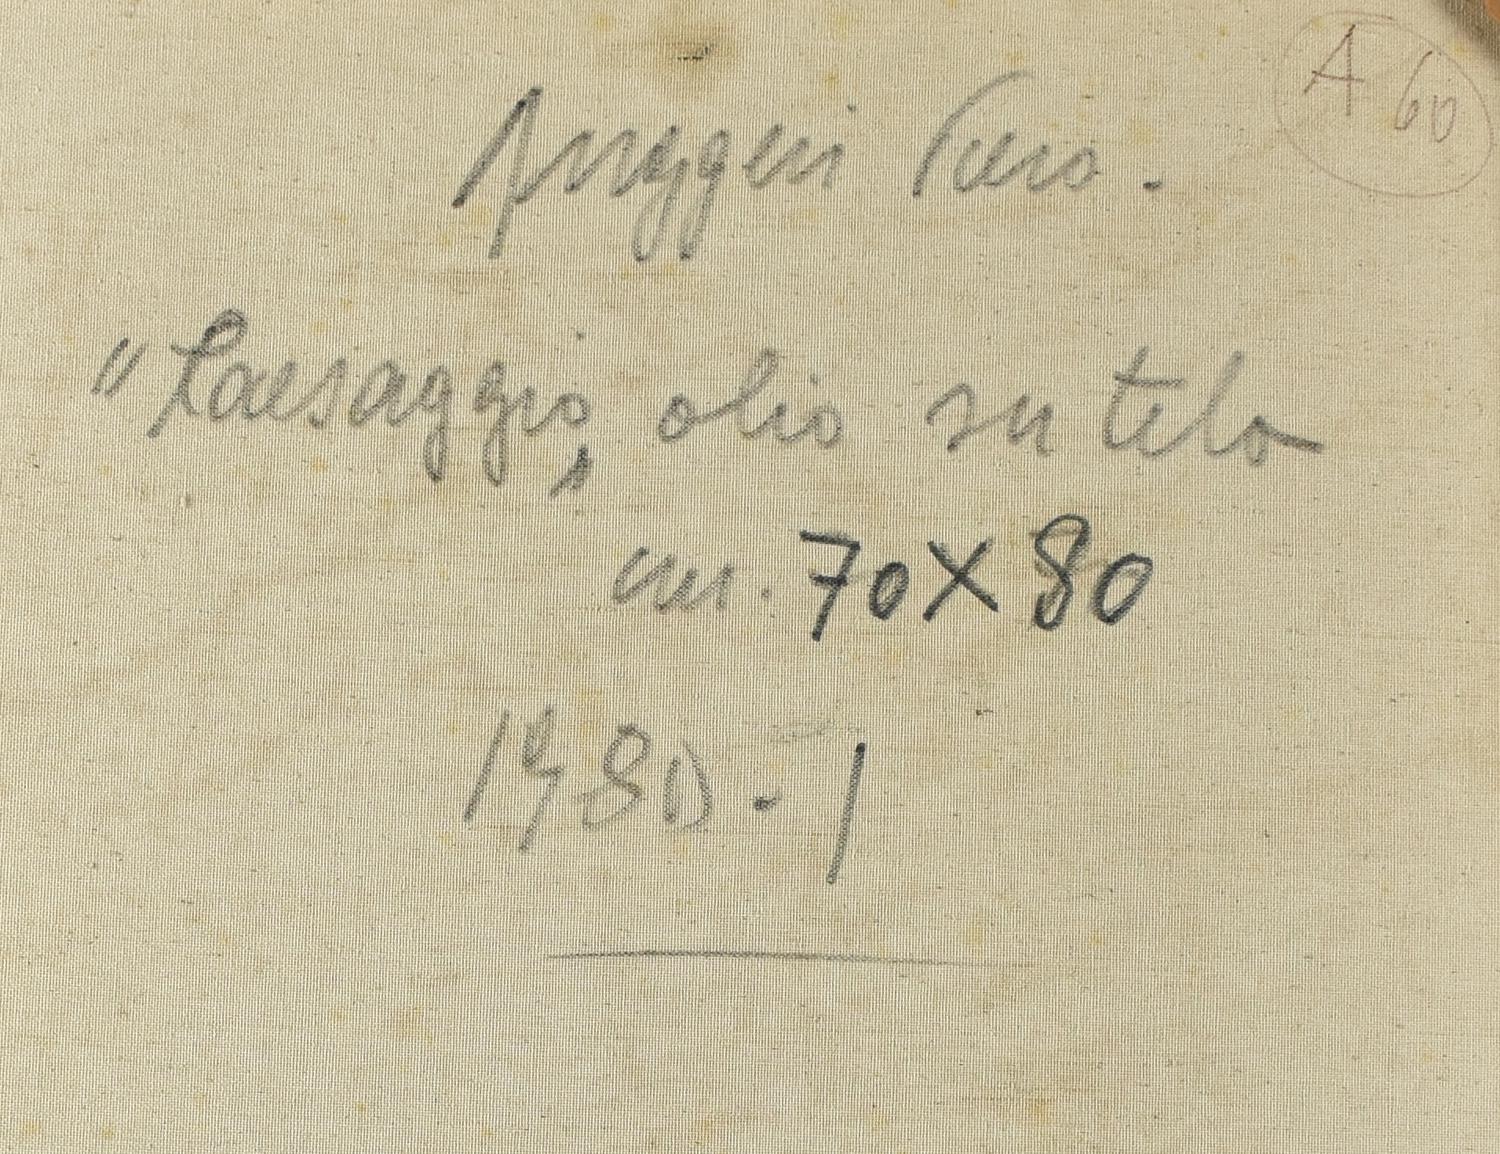 A 60
Ruggeri Piero.
"Paesaggio, olio su tela
cm. 70X80
1980-1